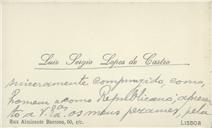 Luis Sergio Lopes de Castro
sinceramente compungido, como
homem e como Republicano, apresen
ta a V. Exª. os meus pezames, pela
Rua Almirante Barroso, 60, r/c. LISBOA